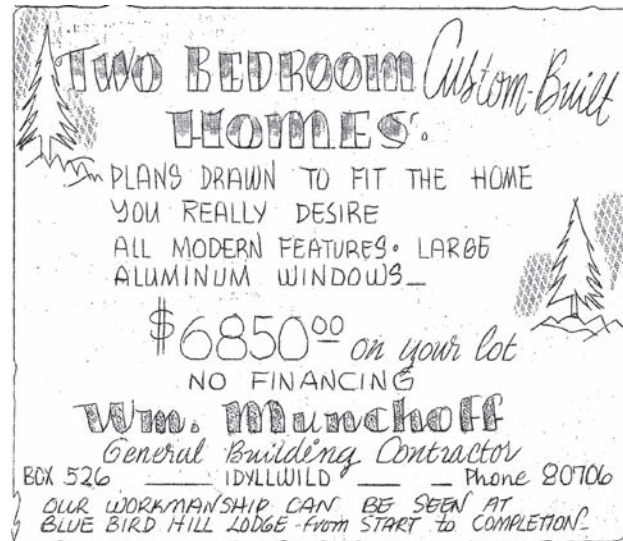 TWO BEDROOM Custom-Built
HOMES.
PLANS DRAWN TO FIT THE HOME
YOU REALLY DESIRE
ALL MODERN FEATURES. LARGE
ALUMINUM WINDOWS_
$6850⁰⁰ on your lot
NO FINANCING
Wm. Munchoff
General Building Contractor
BOX 526 ___ IDYLLWILD __ _ Phone 80706
OUR WORKMANSHIP CAN BE SEEN AT
BLUE BIRD HILL LODGE-from START to COMPLETION-